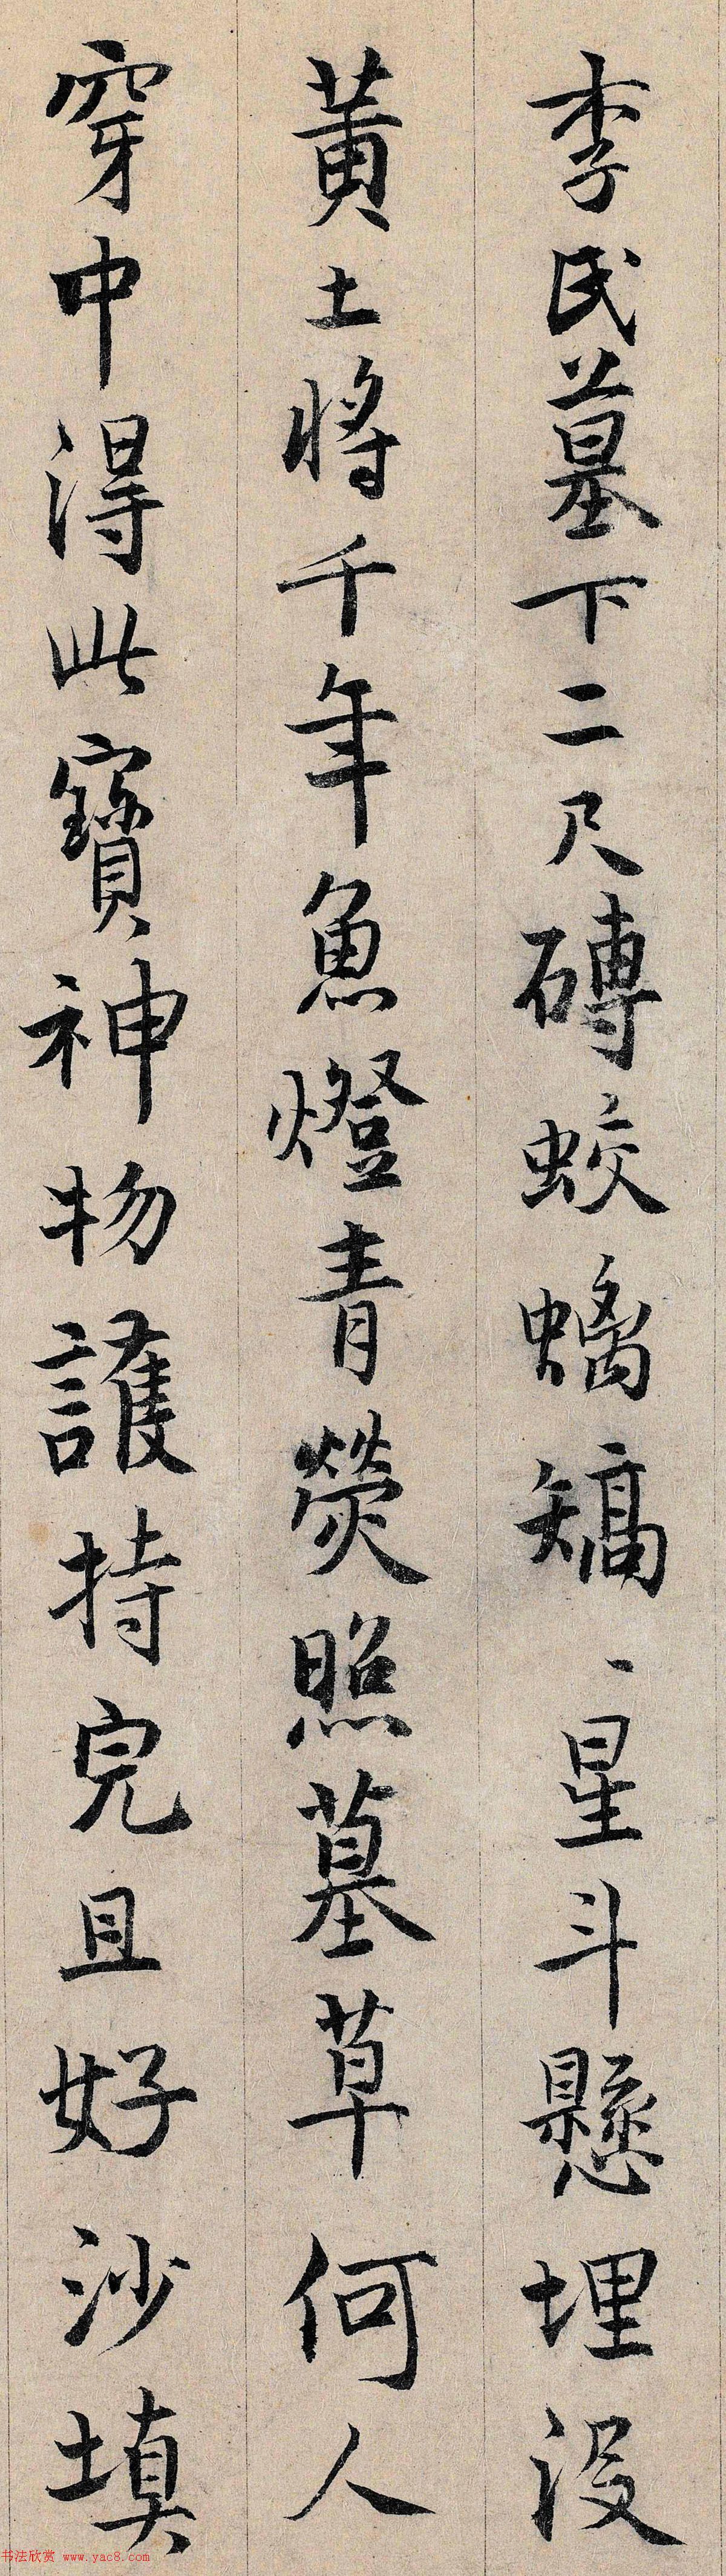 李氏墓下二尺磚蛟螭矯〻星斗懸埋没
黃土將千年魚燈青熒照墓草何人
穿中得此寶神物護持完且好沙填
书法欣赏 www.yac8.com